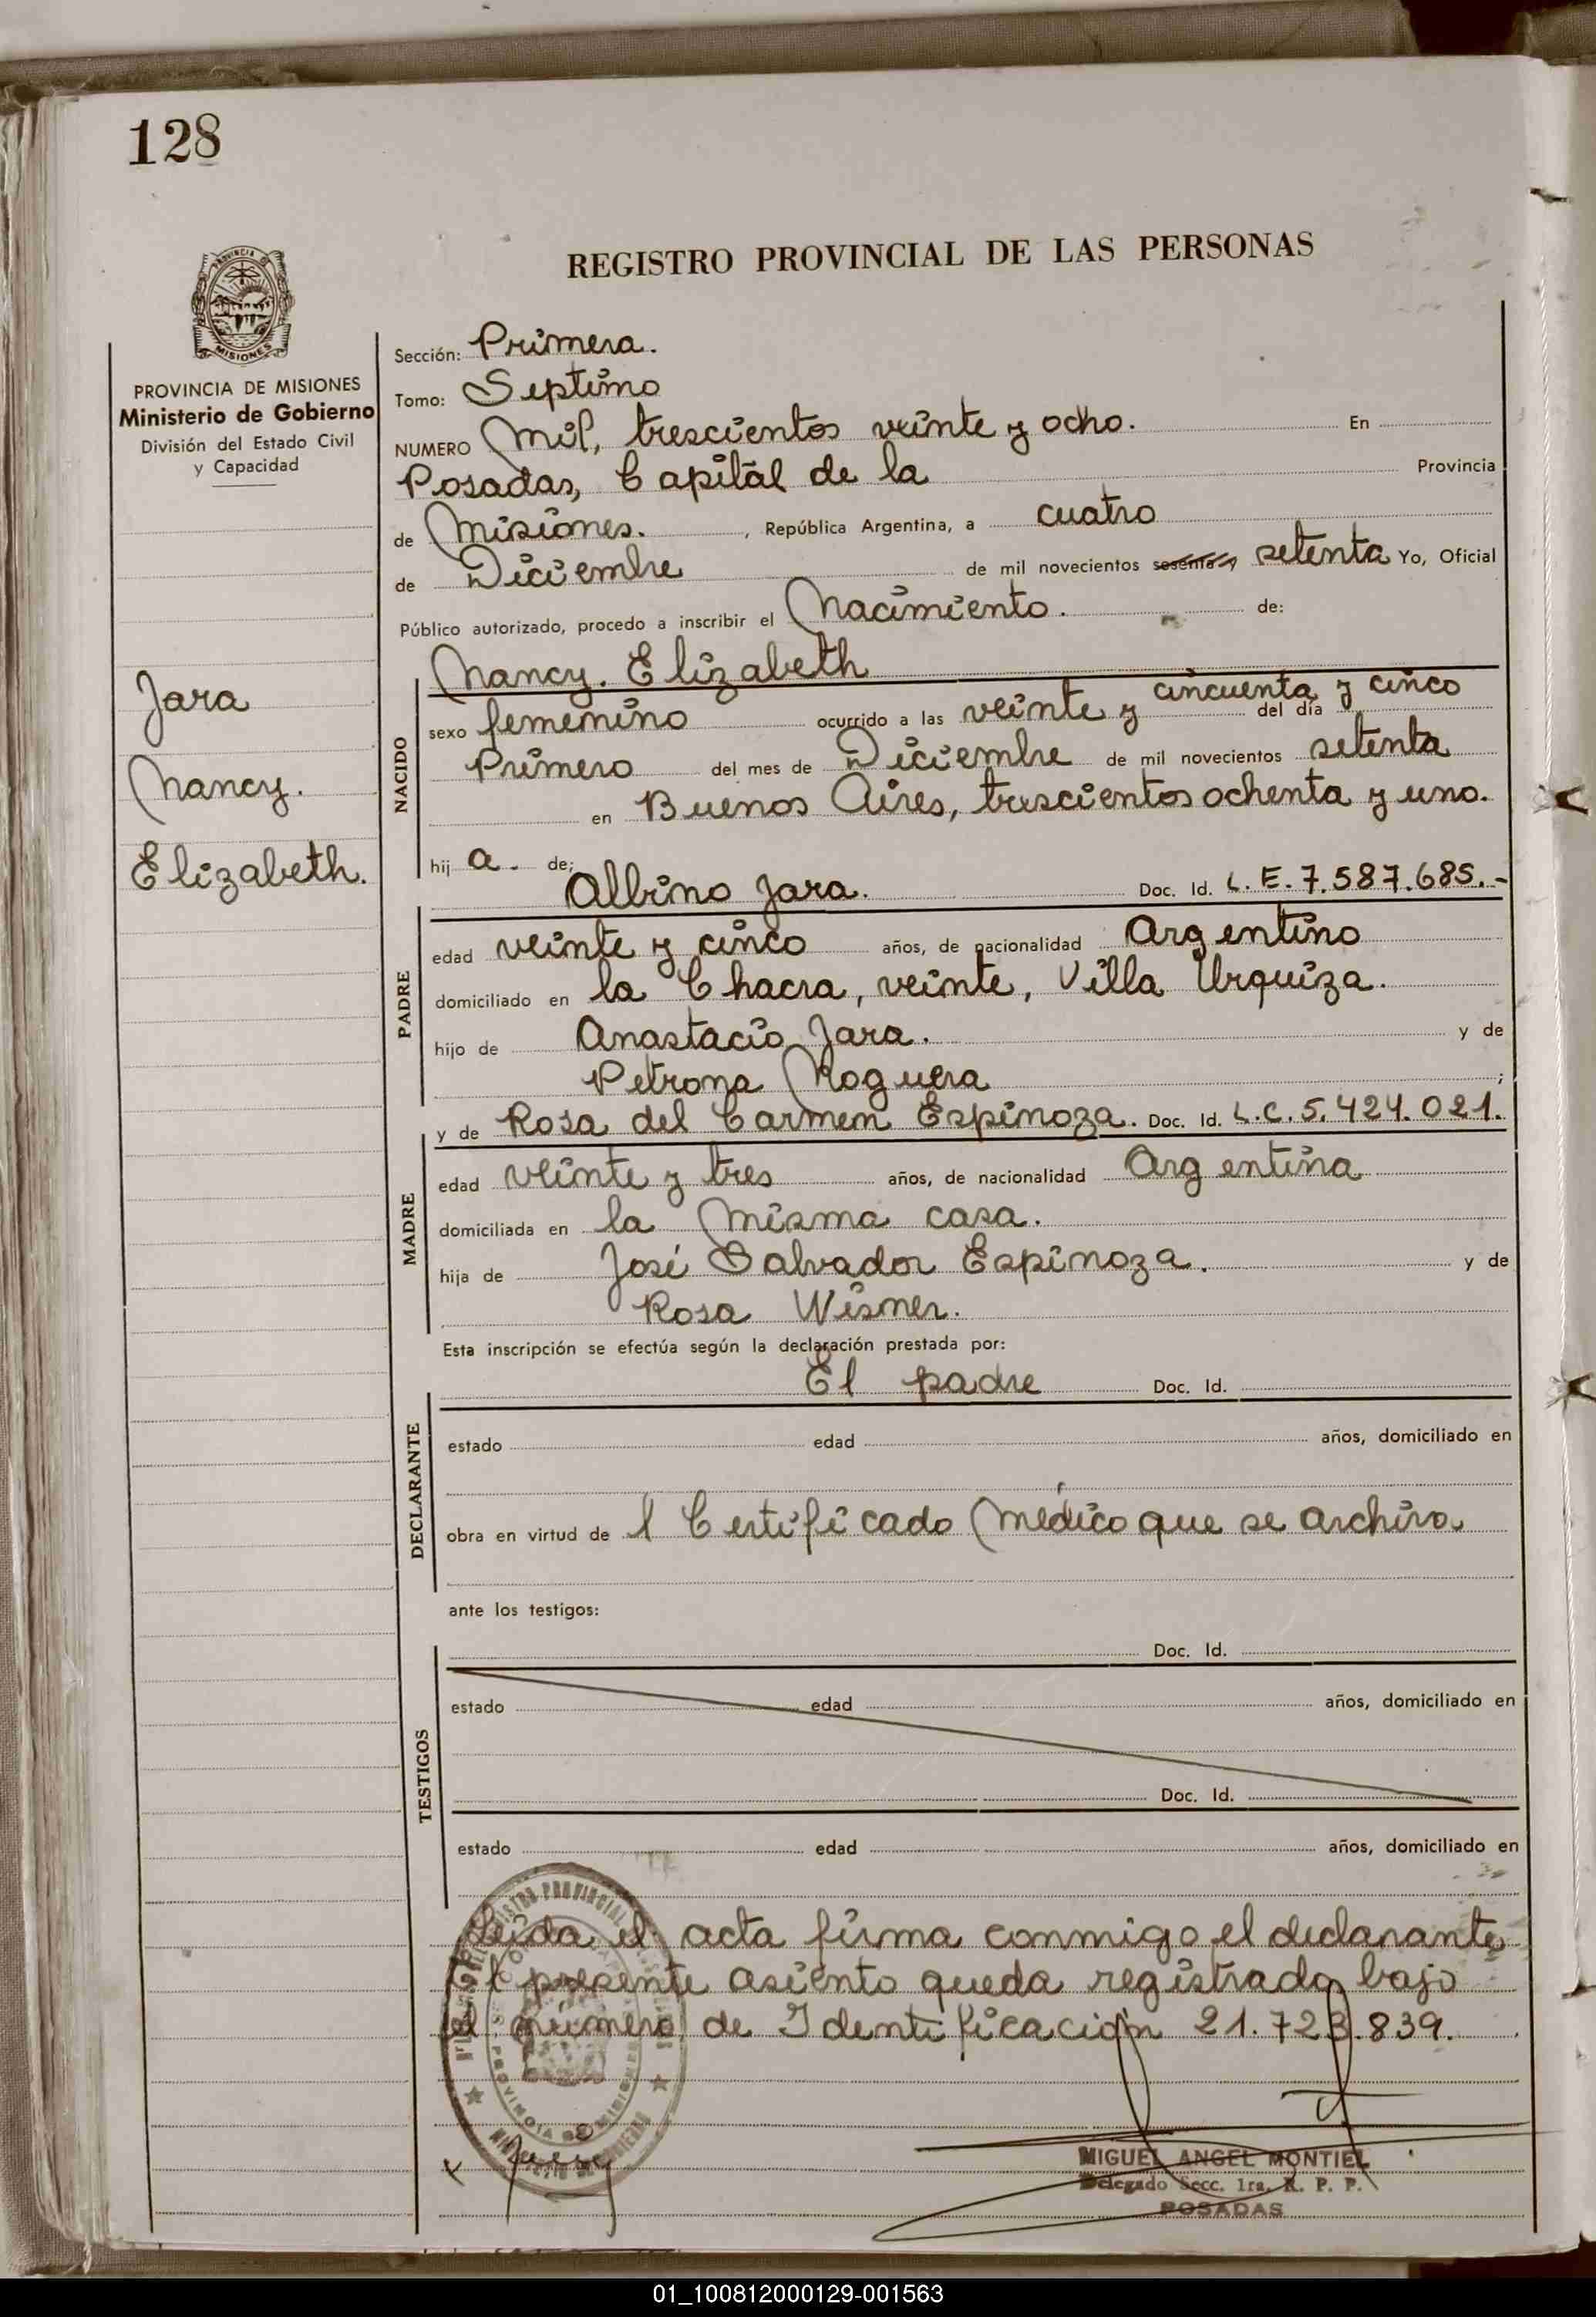 128
REGISTRO PROVINCIAL DE LAS PERSONAS
PROVINCIA DE MISIONES
Ministerio de Gobierno
División del Estado Civil
y Capacidad
Jara
Nancy.
Elizabeth.
Sección: Primera.
Tomo: Septimo
NUMERO Mil, trescientos veinte y ocho. En
Posadas, Capital de la Provincia
de Misiones. , República Argentina, a cuatro
de Diciembre de mil novecientos sesenta y setenta Yo, Oficial
Público autorizado, procedo a inscribir el Nacimiento. de:
NACIDO
Nancy. Elizabeth
sexo femenino ocurrido a las veinte y cincuenta y cinco del día
Primero del mes de Diciembre de mil novecientos setenta
en Buenos Aires, trescientos ochenta y uno.
hij a. de;
PADRE
Albino Jara. Doc. Id. L. E. 7.587.685.-
edad veinte y cinco años, de nacionalidad Argentino
domiciliado en la Chacra, veinte, Villa Urquiza.
hijo de Anastacio Jara. y de
Petrona Noguera ;
MADRE
y de Rosa del Carmen Espinoza. Doc. Id. L.C. 5.424.021.
edad veinte y tres años, de nacionalidad Argentina
domiciliada en la misma casa.
hija de José Salvador Espinoza. y de
Rosa Wismer.
Esta inscripción se efectúa según la declaración prestada por:
DECLARANTE
El padre Doc. Id.
estado edad años, domiciliado en
obra en virtud de l Certificado Médico que se archiva
ante los testigos:
TESTIGOS
Doc. Id.
estado edad años, domiciliado en
Doc. Id.
estado edad años, domiciliado en
Leida el acta firma conmigo el declarante
El presente asiento queda registrado bajo
el número de Identificación 21.723.839.
MIGUEL ANGEL MONTIEL
Delegado Secc. 1ra. R. P. P.
POSADAS
01_100812000129-001563